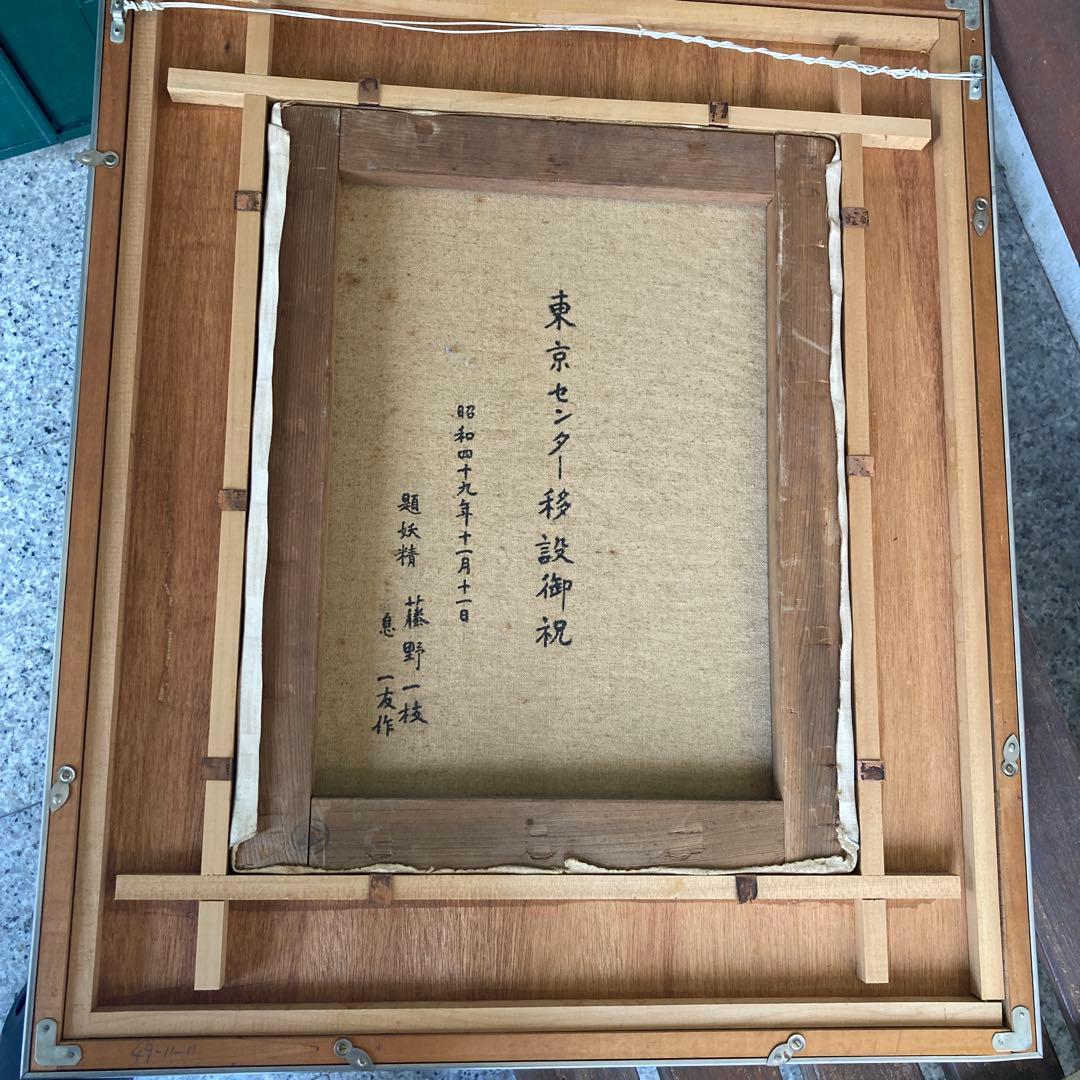 東京センター移設御祝
昭和四十九年十一月十一日
題妖精
藤野一枝
息一友作
49-11-11